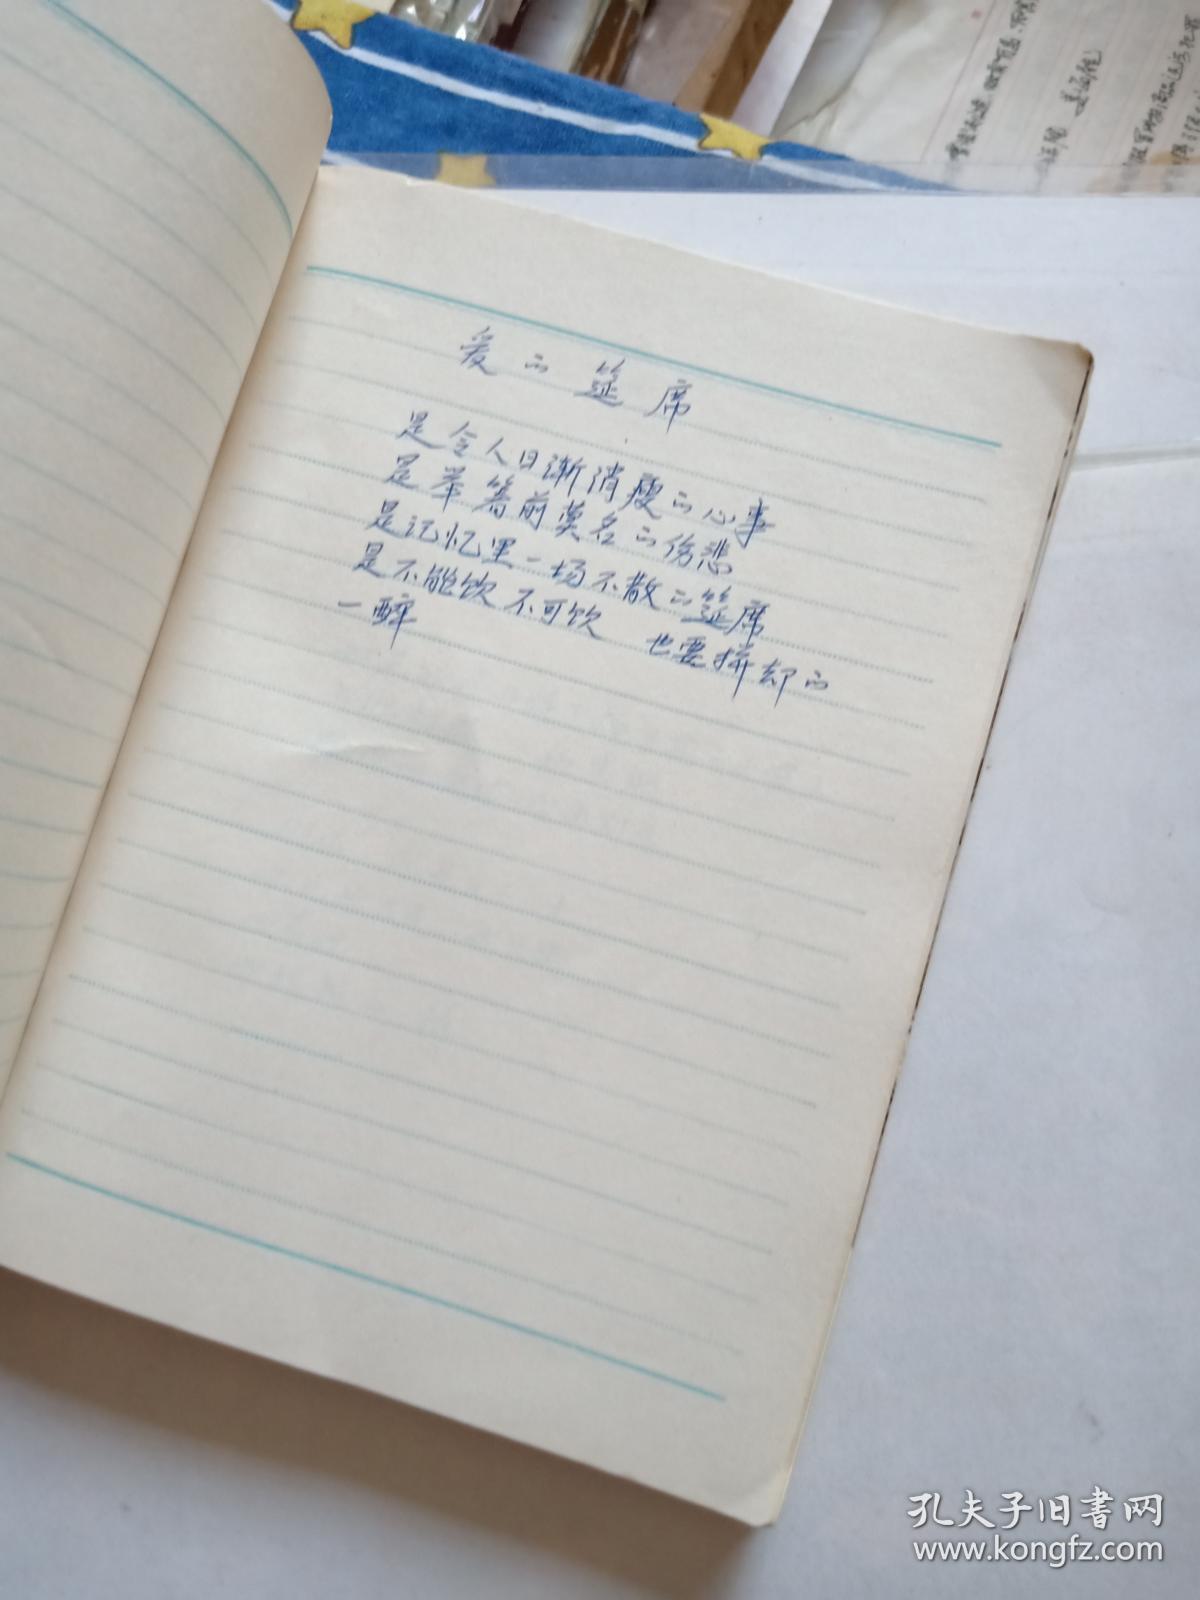 爱的筵席
是令人日渐消瘦的心事
是举箸前莫名的伤悲
是记忆里一场不散的筵席
是不能饮不可饮 也要拼却的
一醉
孔夫子旧书网
www.kongfz.com